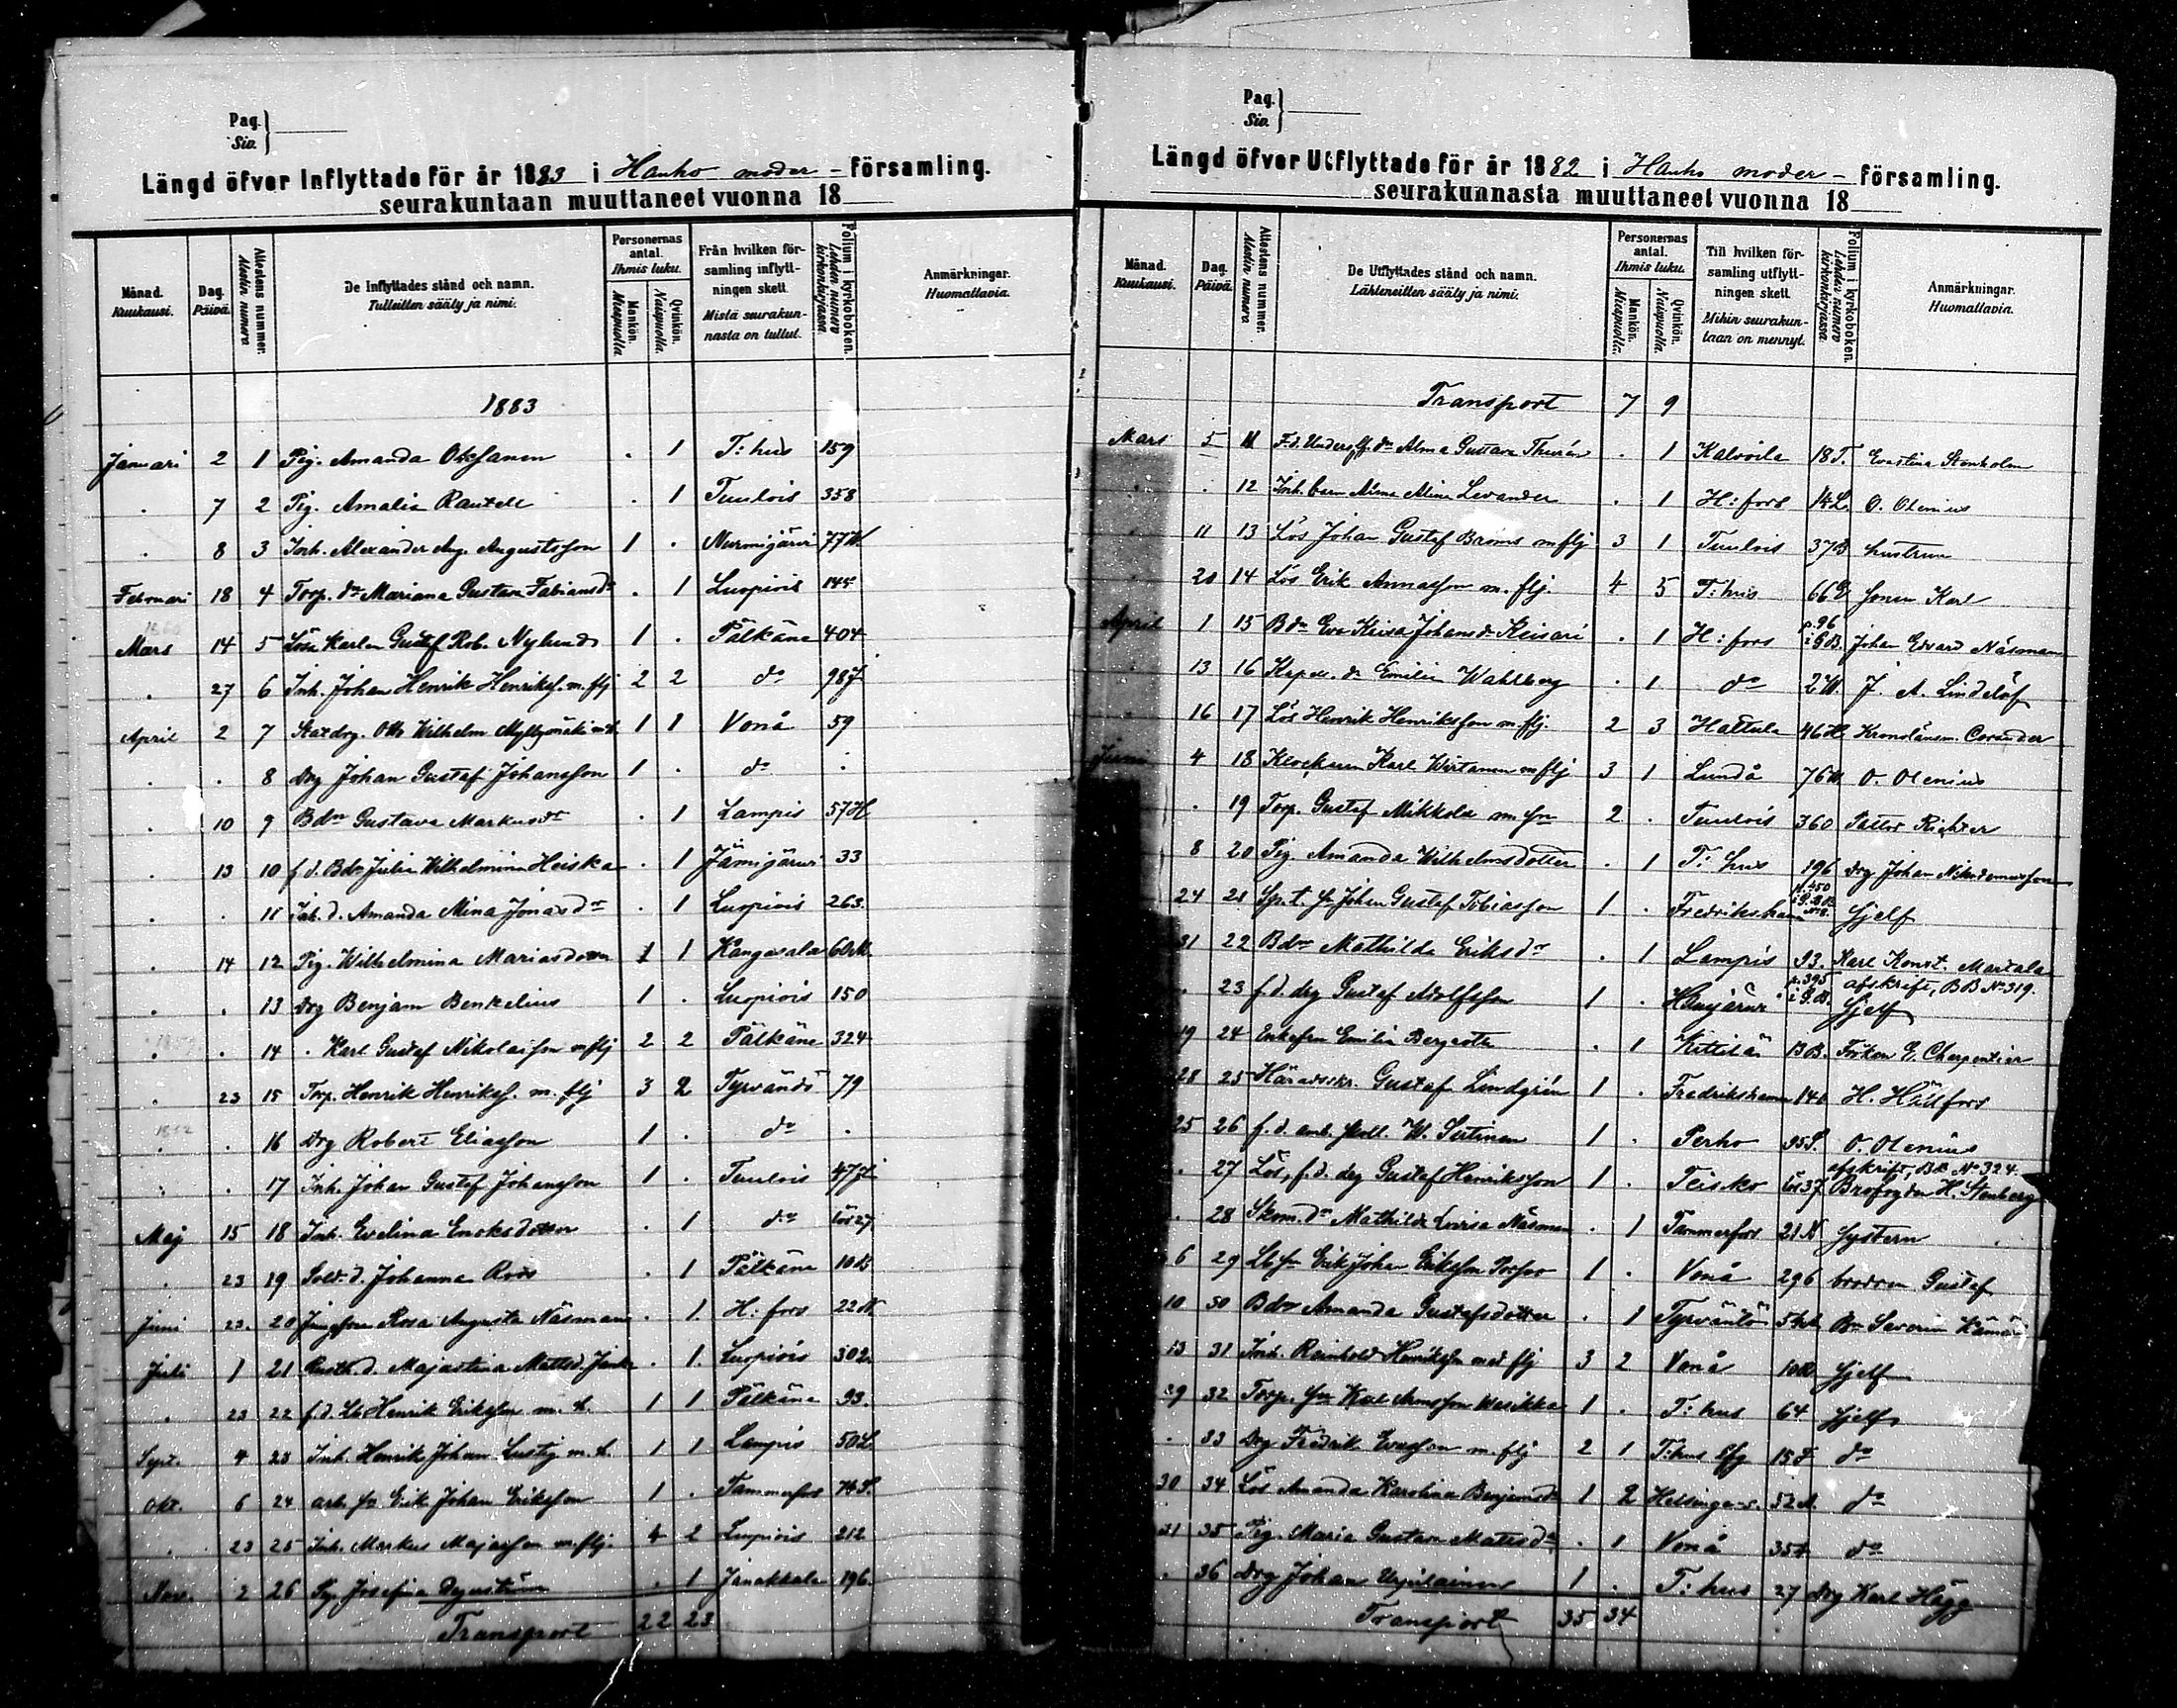 Pag.
Siv.
Längd öfver Inflyttade för år 1883 i Hauho moder-församling.
seurakuntaan muuttaneet vuonna 18
Månad. Kuukausi.
Dag. Päivä.
Allestens nummer. Alestin numero
De Inflyttades stånd och namn.
Tulleitten sääty ja nimi.
Personernas antal. Ihmis luku.
Mankön. Miespuolia
Qvinkön. Naispuolia
Från hvilken församling inflyttningen skett.
Mistä seurakunnasta on tullut.
Folium i kyrkoboken. Lehden numero kirkonkirjassa
Anmärkningar.
Huomattavia.
1883
Januari 2 1 Pig. Amanda Oksanen . 1 T:hus 159
. 7 2 Pig. Amalia Rautell . 1 Tuulois 358
. 8 3 Inh. Alexander Aug. Augustsson 1 . Nurmijärvi 77
Februari 18 4 Torp. dr Mariana Gustava Fabiansdr . 1 Luopiois 145
Mars 14 5 Löse Karlen Gustaf Rob. Nylund 1 . Pälkäne 404
. 27 6 Inh. Johan Henrik Henrikss. m. flj 2 2 do 98
April 2 7 Statdrg. Otto Wilhelm Myllymäki m. h. 1 1 Vonå 59
. . 8 Drg Johan Gustaf Johansson 1 . do .
. 10 9 Bdr Gustava Markusdr . 1 Lampis 57H
. 13 10 f.d. Bdr Julia Wilhelmina Heiska . 1 Jämijärvi 33
. . 11 Inh. d. Amanda Mina Jonasdr . 1 Luopiois 263
. 14 12 Pig. Wilhelmina Mariasdotter 1 1 Kangasala
. . 13 Drg Benjam Benkelius 1 . Luopiois 150
. . 14 . Karl Gustaf Nikolaisson m flj 2 2 Pälkäne 324
. 23 15 Torp. Henrik Henrikss. m. flj 3 2 Tyrvändö 79
. . 16 Drg Robert Eliasson 1 . do .
. . 17 Inh. Johan Gustaf Johansson 1 . Tuulois 47
Maj 15 18 Inh. Evelina Enoksdotter . 1 do lös 27
. 23 19 Sold. d. Johanna Roos . 1 Pälkäne 10
Juni 23. 20 Jungfrun Rosa Augusta Näsman . 1. H:fors 22N
Juli 1 21 Majastina Mattsd. . 1. Luopiois 302
. 23 22 f.d. Henrik Eriksson m. h. 1 1 Pälkäne 93.
Sept. 4 23 Inh. Henrik Johan Lustig m. h. 1 1 Lampis 50L
Okt. 6 24 arb. sn Erik Johan Eriksson 1 . Tammerfors
. 23 25 Inh. Markus Majasson m. flj. 4 2 Luopiois 212
Nov. 2 26 Pig. Josefina . 1 Janakkala 196.
Transport 22 23
Pag.
Siv.
Längd öfver Utflyttade för år 1882 i Hauho moder-församling.
seurakunnasta muuttaneet vuonna 18
Månad. Kuukausi.
Dag. Päivä.
Allestens nummer. Alestin numero
De Utflyttades stånd och namn.
Lähteneitten sääty ja nimi.
Personernas antal. Ihmis luku.
Mankön. Miespuolia.
Qvinkön. Naispuolia.
Till hvilken församling utflyttningen skett.
Mihin seurakuntaan on mennyt.
Folium i kyrkoboken. Lehden numero kirkonkirjassa
Anmärkningar.
Huomattavia.
Transport 7 9
Mars 5 11 F.d. dr Alma Gustava Thurén . 1 Kalvola 18T. Evastina Stenholm
. 12 Inh. barn Alma Mina Levander . 1 H:fors 14L O. Olenius
11 13 Lös Johan Gustaf Broms m flj 3 1 Tuulois 37B hustrun
20 14 Lös Erik Annasson m. flj. 4 5 T:hus 66 sonen Karl
April 1 15 Bdr Eva Kaisa Johansdr Keisari . 1 H:fors p. 96 i GB. Johan Edvard Näsman
13 16 Kapell. dr Emilia Wahlberg . 1 do 2W. J. A. Lindelöf
16 17 Lös Henrik Henriksson m. flj. 2 3 Hattula 46H Kronolänsm. Corander
Juni 4 18 Klockaren Karl Wirtanen m flj 3 1 Lundå 76W. O. Olenius
. 19 Torp. Gustaf Mikkola m. sn 2 . Tuulois 360 Pastor Richter
8 20 Pig. Amanda Wilhelmsdotter . 1 T:hus 196 Drg Johan Nikodemusson
24 21 sn Johan Gustaf Tobiasson 1 . Fredrikshamn p. 450 sjelf
31 22 Bdr Mathilda Eriksdr . 1 Lampis 93. Karl Konst. Martala
. 23 f.d. drg Gustaf Adolfsson 1 . p. 395 i G.B. afskrift, BB No 319. sjelf
19 24 Enkefru Emilia Bergroth . 1 Kittilä BB. Fröken E. Charpentier
28 25 Häradsskr. Gustaf Lindgrén 1 . Fredrikshamn 140 H. Hällfors
25 26 f.d. W. Sutinen 1 . Perho 95 O. Olenius
. 27 Lös, f.d. drg Gustaf Henriksson 1 . Teisko lös 37 afskrift, BB No 324. Brofogden H. Stenberg
. 28 Skom. dr Mathilda Lovisa Näsman . 1 Tammerfors 21N systern
6 29 sn Erik Johan Eriksson 1 . Vonå 296 brodren Gustaf
10 30 Bdr Amanda Gustafsdotter . 1 Tyrväntö Severin
13 31 Inh. Reinhold Henriksson med flj 3 2 Vonå sjelf
29 32 Torp. sn Karl 1 . T:hus 64 sjelf
. 33 Drg Fredrik Evasson m. flj 2 1 T:hus lfg 15 do
30 34 Lös Amanda Karolina Benjamsdr 1 2 Helsinge 52 do
31 35 Pig. Maria Gustava Mattsdr . 1 Vonå 35 do
. 36 Drg Johan 1 . T:hus 27 Drg Karl Hägg
Transport 35 34